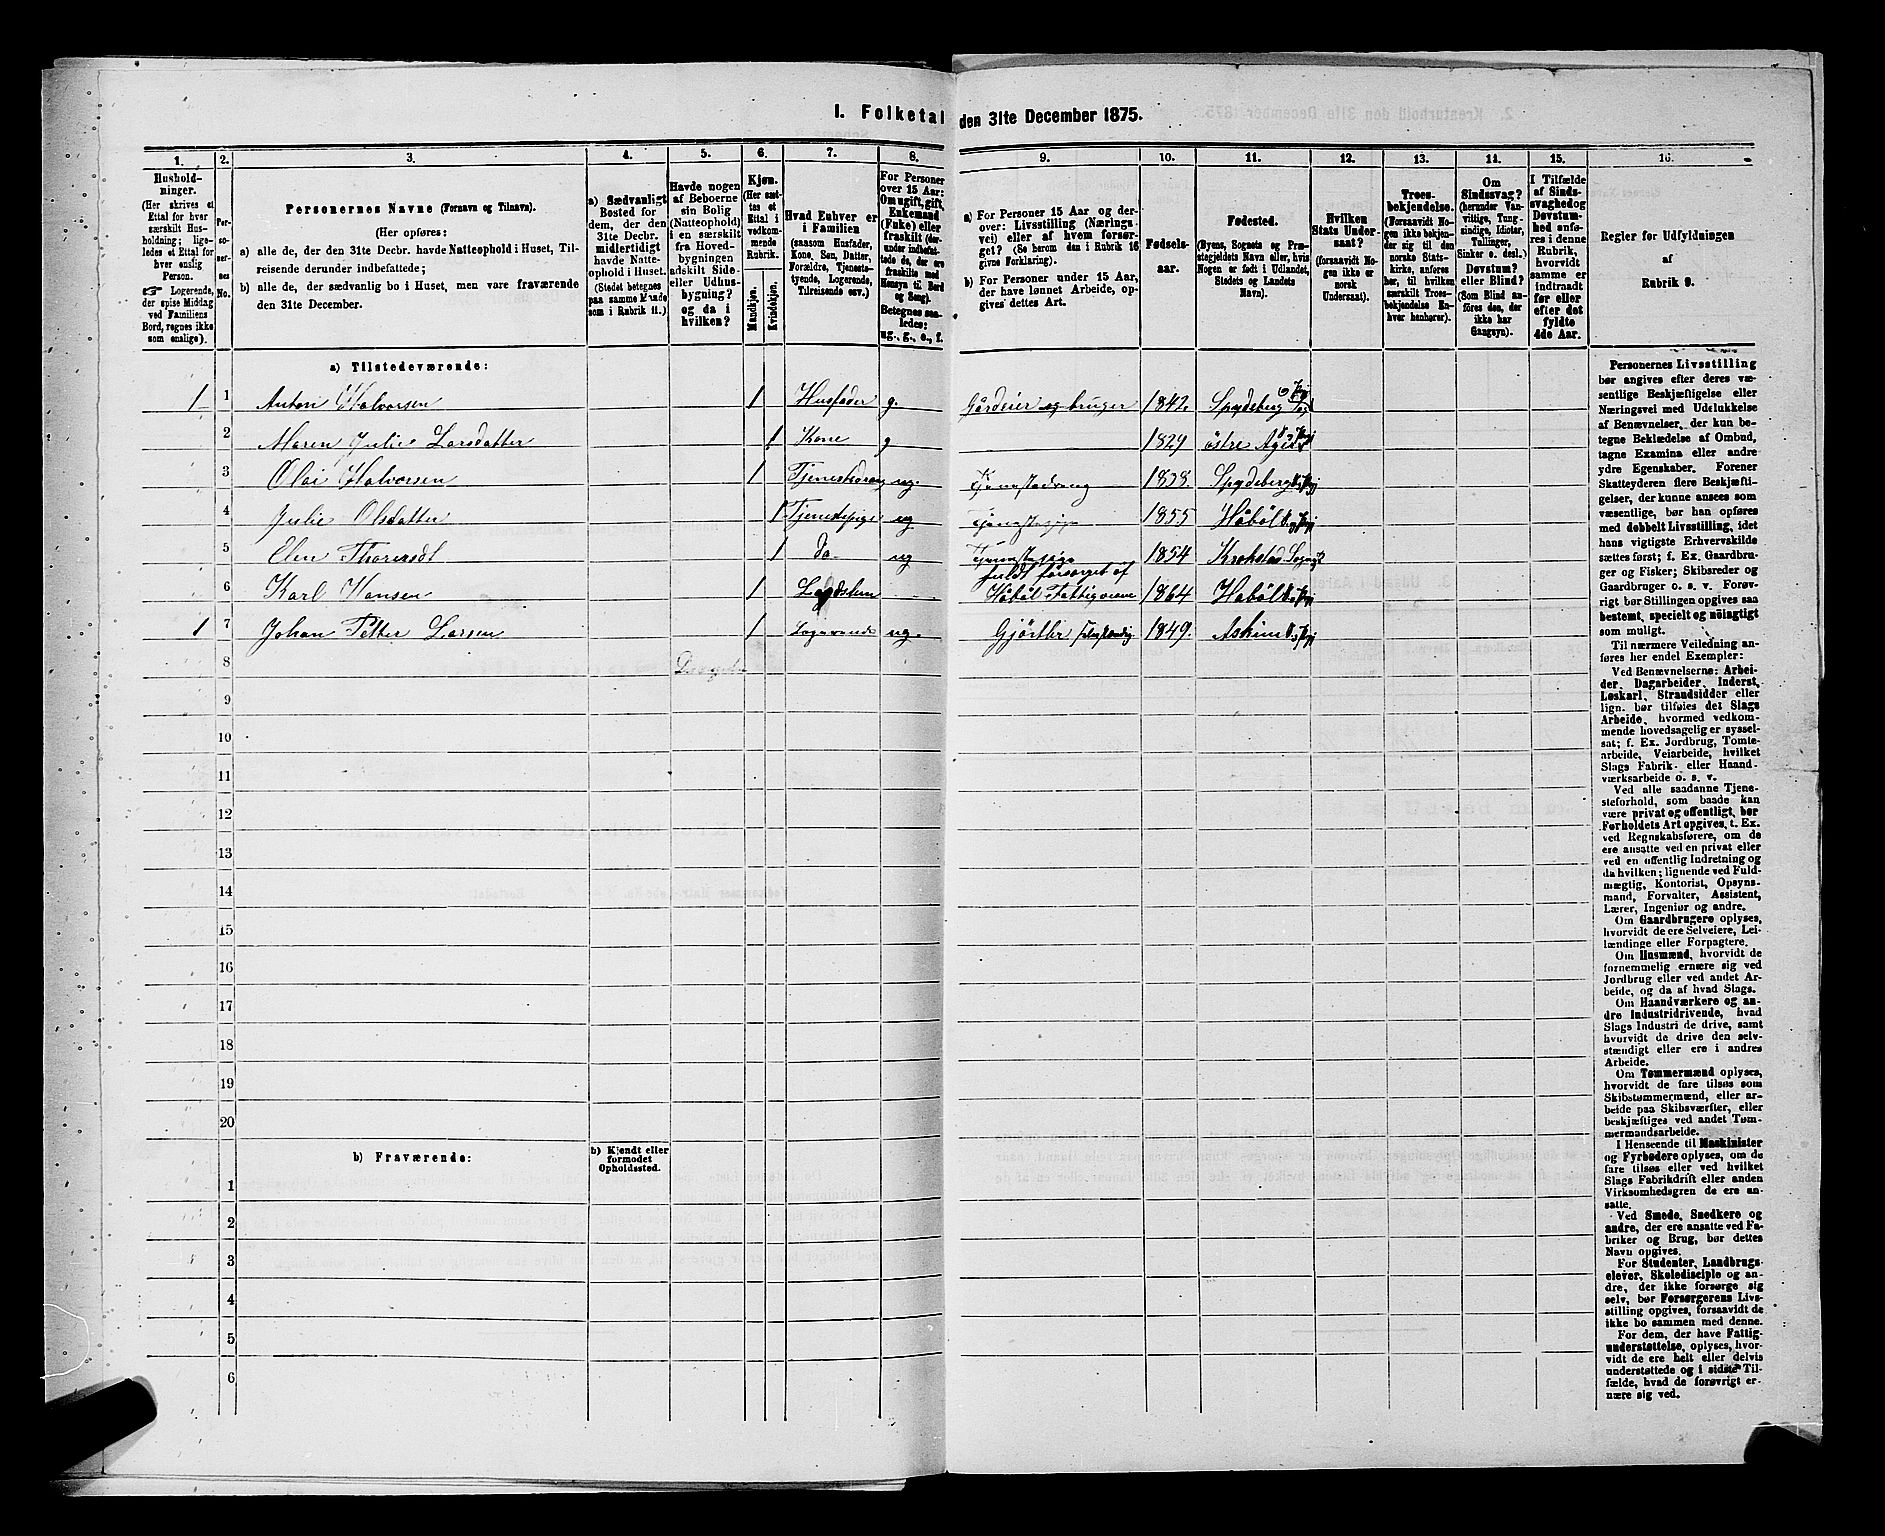 I. Folketal den 31te December 1875.
1. 2. 3. 4. 5. 6. 7. 8. 9. 10. 11. 12. 13. 14. 15. 16.
Hushold-
ninger.
(Her skrives et
Ettal for hver
særskilt Hus-
holdning; lige-
ledes et Ettal for
hver enslig
Person.
Logerende,
der spise Middag
ved Familiens
Bord, regnes ikke
som enslige).
Per-
so-
ner-
nes
No.
Personernes Navne (Fornavn og Tilnavn).
(Her opføres:
a) alle de, der den 31te Decbr. havde Natteophold i Huset, Til-
reisende derunder indbefattede;
b) alle de, der sædvanlig bo i Huset, men vare fraværende
den 31te December.
a) Sædvanligt
Bosted for
dem, der den
31te Decbr.
midlertidigt
havde Natte-
ophold i Huset.
(Stedet betegnes
paa samme Maade
som i Rubrik 11.)
Havde nogen
af Beboerne
sin Bolig
(Natteophold)
i en særskilt
fra Hoved-
bygningen
adskilt Side-
eller Udhus-
bygning?
og da i
hvilken?
Kjøn.
(Her sæt-
tes et
Ettal i
vedkom-
mende
Rubrik.
Mandkjøn.
Kvindekjøn.
Hvad Enhver er
i Familien
(saasom Husfader,
Kone, Søn, Datter,
Forældre, Tjeneste-
tyende, Logerende,
Tilreisende osv.)
For Personer
over 15 Aar:
Om ugift, gift,
Enkemand
(Enke) eller
fraskilt (der-
under indbefat-
tede de, der ere
fraskilte med
Hensyn til Bord
og Seng).
Betegnes saa-
ledes:
ug., g., e., f.
a) For Personer 15 Aar og der-
over: Livsstilling (Nærings-
vei) eller af hvem forsør-
get? (Se herom den i Rubrik 16
givne Forklaring).
b) For Personer under 15 Aar,
der have lønnet Arbeide, op-
gives dettes Art.
Fødsels-
aar.
Fødested.
(Byens, Sognets og Præ-
stegjeldets Navn, eller, hvis
Nogen er født i Udlandet,
Stedets og Landets
Navn).
Hvilken
Stats Under-
saat?
(forsaavidt No-
gen ikke er
norsk
Undersaat).
Troes-
bekjendelse.
(Forsaavidt No-
gen ikke bekjen-
der sig til den
norske Stats-
kirke, anføres
her, til hvilken
særskilt Troes-
bekjendelse En-
hver henhører).
Om
Sindssvag?
(herunder Van-
vittige, Tung-
sindige, Idioter,
Tullinger,
Sinker o. desl.)
Døvstum?
eller Blind?
(Som Blind an-
føres den, der
ikke har
Gangsyn).
I Tilfælde
af Sinds-
svaghed og
Døvstum-
hed anfø-
res i denne
Rubrik,
hvorvidt
samme er
indtraadt
før eller
efter det
fyldte
4de Aar.
Regler for Udfyldningen
af
Rubrik 9.
a) Tilstedeværende:
1 1 Anton Halvorsen 1 Husfader g. Gårdeier og bruger 1842. Spydeberg
2 Maren Julie Larsdatter 1 Kone g 1829 østre
3 Olai Halvorsen 1 Tjenestedreng ug. Tjenestedreng 1838. Spydeberg
4 Julie Olsdatter 1 Tjenestepige ug Tjenestepige 1855 Håbøl
5 Elen Thoresdt 1 do ug Tjenestepige 1854 Krokstad Sogn
6 Karl Hansen 1 Lægdslem fuldt forsørget af
Håbøl Fattigvæsen 1864 Habøl
1 7 Johan Petter Larsen 1 Logerende ug. Gjørtler selvstændig 1849. Askim
8
9
10
11
12
13
14
15
16
17
18
19
20
b) Fraværende:
b) Kjendt eller
formodet
Opholdssted.
1
2
3
4
5
6
Personernes Livsstilling
bør angives efter deres væ-
sentlige Beskjæftigelse eller
Næringsvei med Udelukkelse
af Benævnelser, der kun be-
tegne Beklædelse af Ombud,
tagne Examina eller andre
ydre Egenskaber. Forener
Skatteyderen flere Beskjæfti-
gelser, der kunne ansees som
væsentlige, bør han opføres
med dobbelt Livsstilling, idet
hans vigtigste Erhvervskilde
sættes først; f. Ex. Gaardbru-
ger og Fisker; Skibsreder og
Gaardbruger o. s. v. Forøv-
rigt bør Stillingen opgives saa
bestemt, specielt og nöiagtigt
som muligt.
Til nærmere Veiledning an-
føres her endel Exempler:
Ved Benævnelserne: Arbei-
der, Dagarbeider, Inderst,
Løskarl, Strandsidder eller
lign. bør tilføies det Slags
Arbeide, hvormed vedkom-
mende hovedsagelig er syssel-
sat; f. Ex. Jordbrug, Tomte-
arbeide, Veiarbeide, hvilket
Slags Fabrik- eller Haand-
værksarbeide o. s. v.
Ved alle saadanne Tjene-
steforhold, som baade kan
være privat og offentligt, bør
Forholdets Art opgives, t. Ex.
ved Regnskabsførere, om de
ere ansatte ved en privat eller
ved en offentlig Indretning og
da hvilken; lignende ved Fuld-
mægtig, Kontorist, Opsyns-
mand, Forvalter, Assistent,
Lærer, Ingeniør og andre.
Om Gaardbrugere oplyses,
hvorvidt de ere Selveiere, Lei-
lændinge eller Forpagtere.
Om Husmænd, hvorvidt de
fornemmelig ernære sig ved
Jordbrug eller ved andet Ar-
beide, og da af hvad Slags.
Om Haandværkere og an-
dre Industridrivende, hvad
Slags Industri de drive, samt
hvorvidt de drive den selv-
stændigt eller ere i andres
Arbeide.
Om Tømmermænd oplyses,
hvorvidt de fare tilsøs som
Skibstømmermænd, eller ar-
beide paa Skibsværfter, eller
beskjæftiges ved andet Tøm-
mermandsarbeide.
I Henseende til Maskinister
og Fyrbødere oplyses, om de
fare tilsøs eller ved hvilket
Slags Fabrikdrift eller anden
Virksomhedsgren de ere an-
satte.
Ved Smede, Snedkere og
andre, der ere ansatte ved Fa-
briker og Brug, bør dettes
Navn opgives.
For Studenter, Landbrugs-
elever, Skoledisciple og an-
dre, der ikke forsørge sig
selv, bør Forsørgerens Livs-
stilling opgives, forsaavidt de
ikke bo sammen med denne.
For dem, der have Fattig-
understøttelse, oplyses, hvor-
vidt de ere helt eller delvis
understøttede og i sidste Til-
fælde, hvad de forøvrigt er-
nære sig ved.